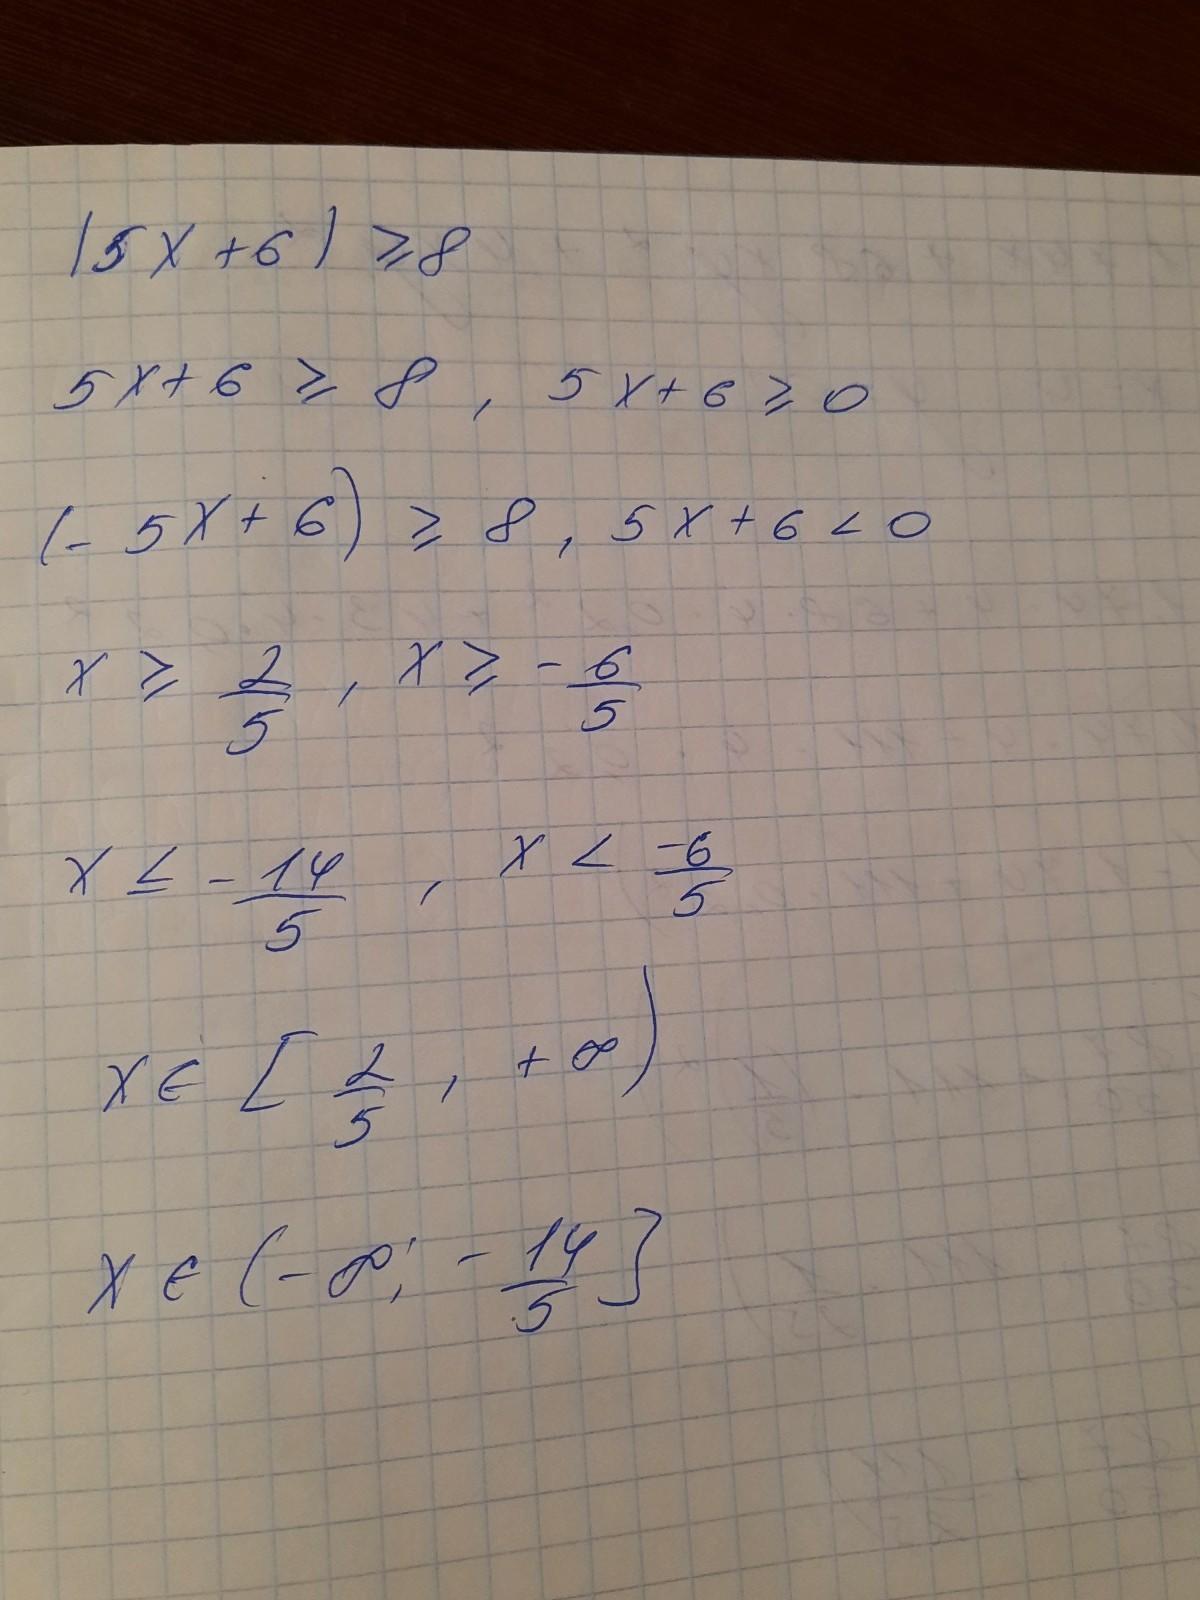 |5x+6| ≥ 8
5x+6 ≥ 8, 5x+6 ≥ 0
(-5x+6) ≥ 8, 5x+6 < 0
x ≥ 2/5, x ≥ -6/5
x ≤ -14/5, x < -6/5
x ∈ [2/5, +∞)
x ∈ (-∞; -14/5]